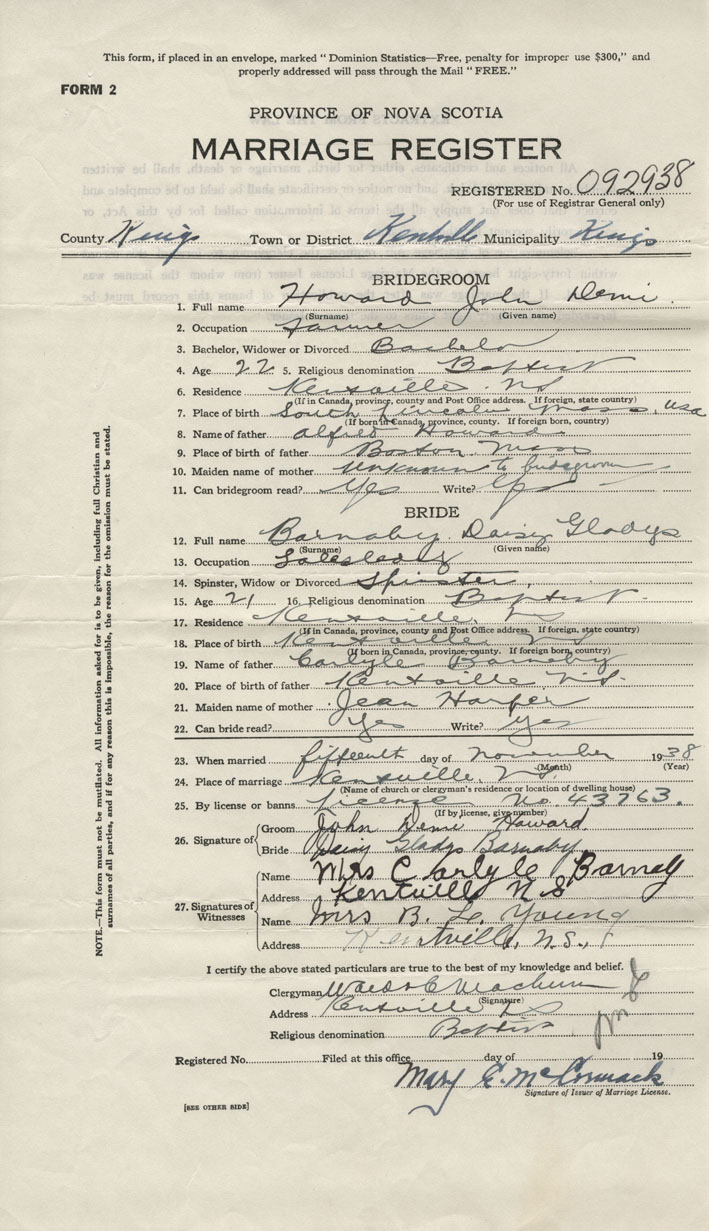 This form, if placed in an envelope, marked " Dominion Statistics—Free, penalty for improper use $300," and
properly addressed will pass through the Mail " FREE."
FORM 2
PROVINCE OF NOVA SCOTIA
MARRIAGE REGISTER
REGISTERED No. 092938
(For use of Registrar General only)
County Kings Town or District Kentville Municipality Kings
BRIDEGROOM
1. Full name Howard John Demi
(Surname) (Given name)
2. Occupation farmer
3. Bachelor, Widower or Divorced Bachelor
4. Age 22 5. Religious denomination Baptist
6. Residence Kentville NS
(If in Canada, province, county and Post Office address. If foreign, state country)
7. Place of birth South Lincoln Mass, USA
(If born in Canada, province, county. If foreign born, country)
8. Name of father Alfred Howard
9. Place of birth of father Boston Mass
10. Maiden name of mother unknown to bridegroom
11. Can bridegroom read? Yes Write? Yes
BRIDE
12. Full name Barnaby Daisy Gladys
(Surname) (Given name)
13. Occupation Saleslady
14. Spinster, Widow or Divorced Spinster
15. Age 21 16. Religious denomination Baptist
17. Residence Kentville, NS
(If in Canada, province, county and Post Office address. If foreign, state country)
18. Place of birth Kentville NS
(If born in Canada, province, county. If foreign born, country)
19. Name of father Carlyle Barnaby
20. Place of birth of father Kentville N.S.
21. Maiden name of mother Jean Harper
22. Can bride read? Yes Write? Yes
23. When married fifteenth day of November 1938
(Month) (Year)
24. Place of marriage Kentville, N.S.
(Name of church or clergyman's residence or location of dwelling house)
25. By license or banns License No. 43763.
(If by license, give number)
26. Signature of
Groom John Demi Howard
Bride Daisy Gladys Barnaby
27. Signatures of Witnesses
Name Mrs Carlyle Barnaby
Address Kentville N S
Name Mrs B. L. Young
Address Kentville, N.S.,
I certify the above stated particulars are true to the best of my knowledge and belief.
Clergyman
(Signature)
Address Kentville NS
Religious denomination Baptist
Registered No. Filed at this office day of 19
Mary E. McCormack
Signature of Issuer of Marriage License.
[SEE OTHER SIDE]
NOTE.—This form must not be mutilated. All information asked for is to be given, including full Christian and
surnames of all parties, and if for any reason this is impossible, the reason for the omission must be stated.